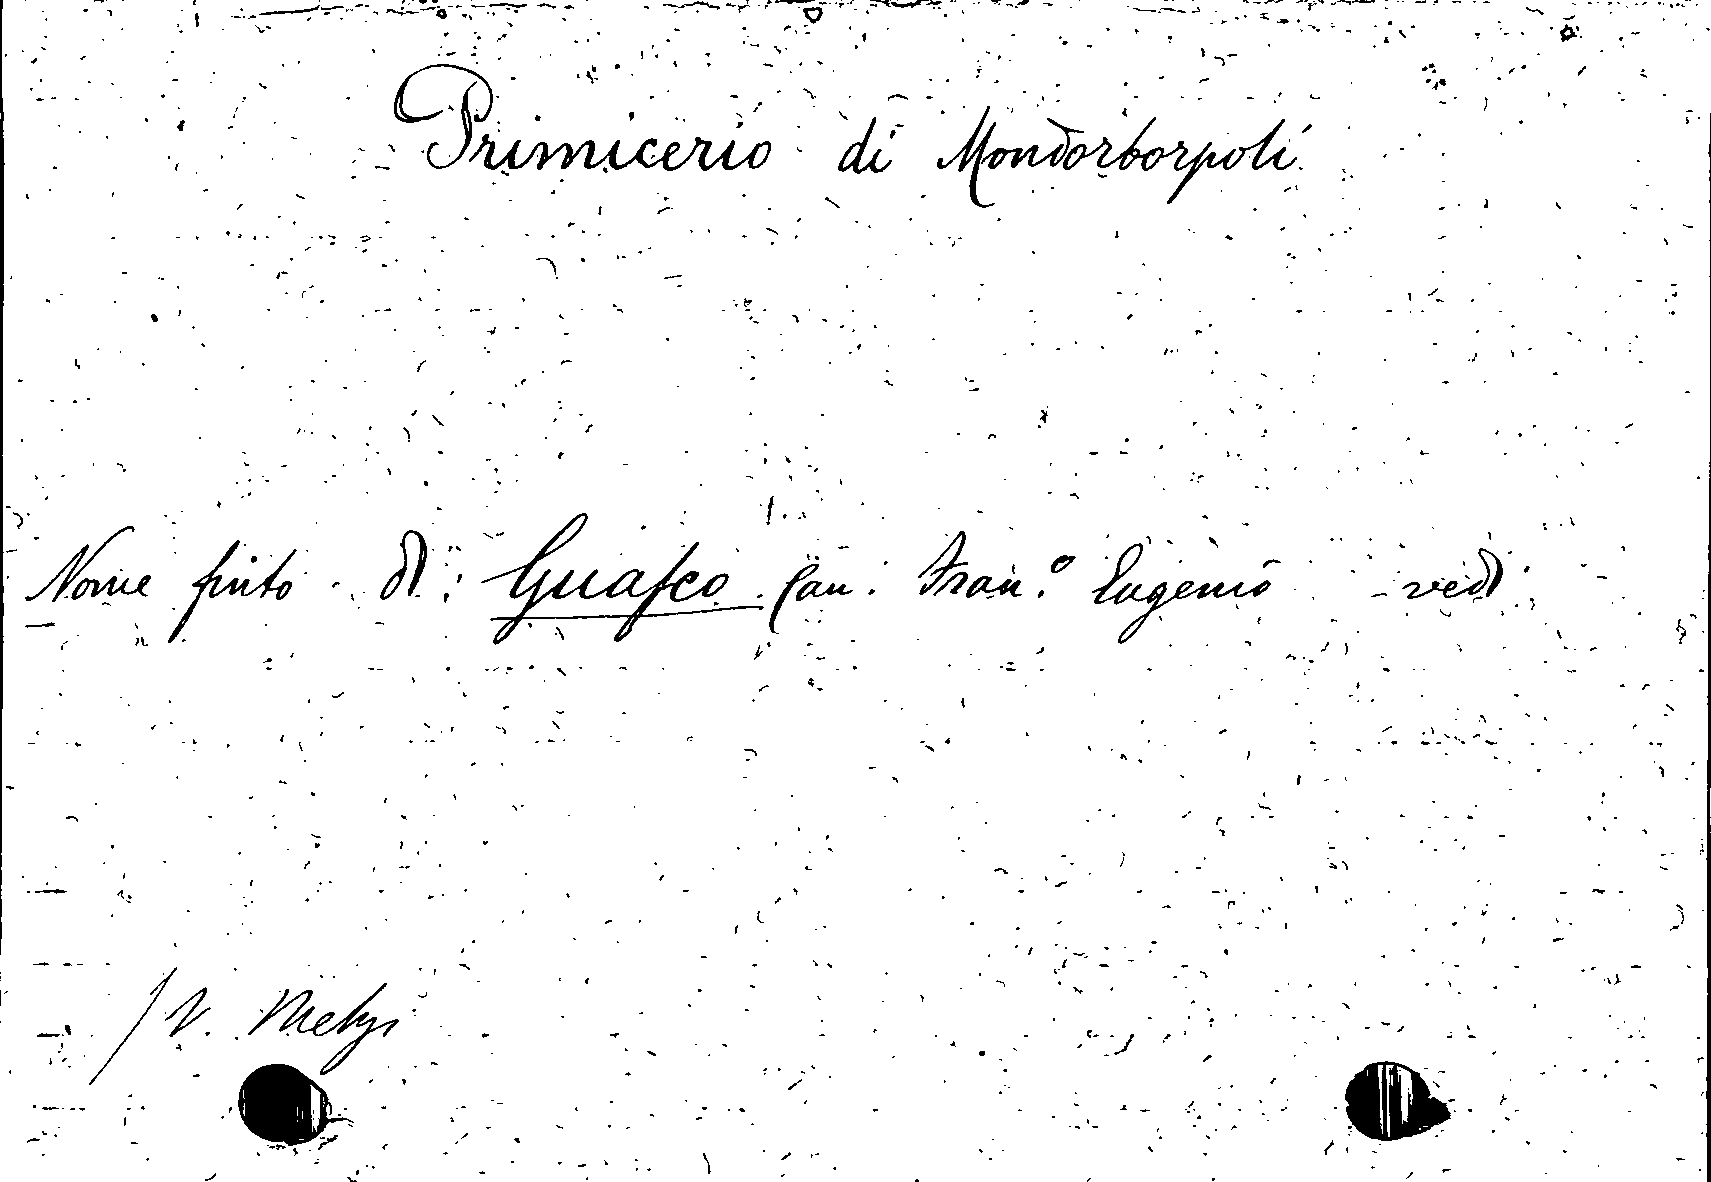 Primicerio di Mondorborpoli
Nome finto di Guasco Can. Fran.º Eugenio vedi
/ V. Melzi